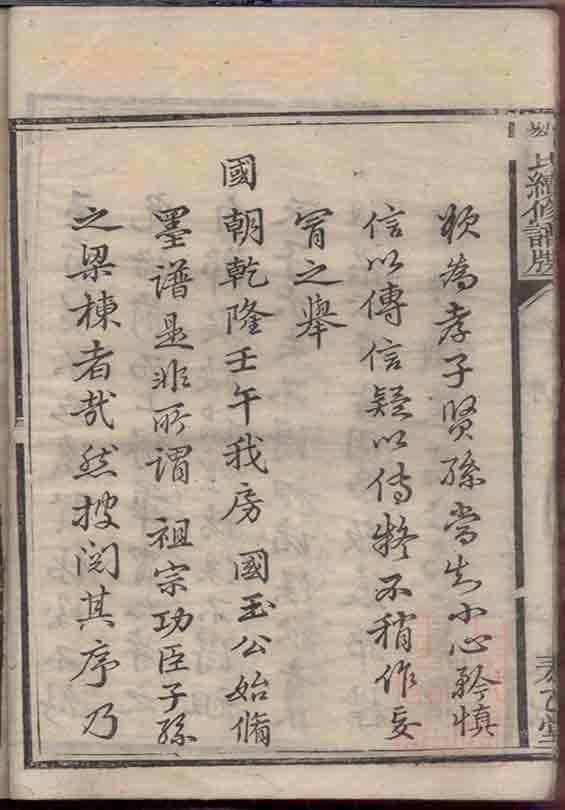 氏續修譜牒
欤為孝子賢孫當知小心矜慎
信以傳信疑以傳疑不稍作妄
冒之舉
國朝乾隆壬午我房 國玉公始脩
墨譜是非所謂 祖宗功臣子孫
之梁棟者哉然披閱其序乃